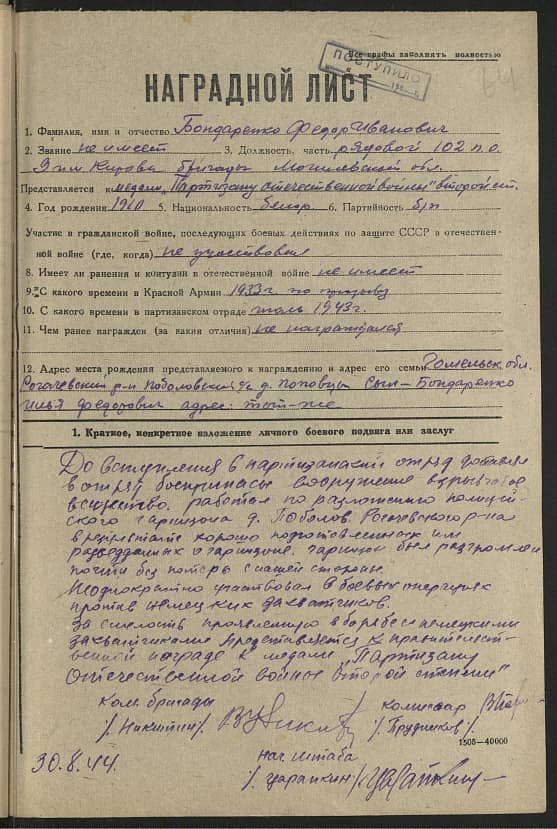 Все графы заполнять полностью
ПОСТУПИЛО
64
НАГРАДНОЙ ЛИСТ
1. Фамилия, имя и отчество Бондаренко Федор Иванович
2. Звание не имеет 3. Должность, часть рядовой 102 п.о.
Кирова бригады Могилевской обл.
Представляется к медали "Партизану отечественной войны" второй ст.
4. Год рождения 1910 5. Национальность белор 6. Партийность б/п
Участие в гражданской войне, последующих боевых действиях по защите СССР в отечествен-
ной войне (где, когда) не участвовал
8. Имеет ли ранения и контузии в отечественной войне не имеет
9. С какого времени в Красной Армии 1933г. по
10. С какого времени в партизанском отряде июль 1943г.
11. Чем ранее награжден (за какие отличия) не награждался
12. Адрес места рождения представляемого к награждению и адрес его семьи Гомельск. обл.
Рогачевский р-н Поболовский с/с д. Поповцы Сын - Бондаренко
Илья Федорович адрес: тот-же
1. Краткое, конкретное изложение личного боевого подвига или заслуг
До вступления в партизанский отряд доставлял
в отряд боеприпасы вооружение взрывчатое
вещество. работал по разложению полицей-
ского гарнизона д. Поболов. Рогачевского р-на
в результате хорошо подготовленных им
разведданных о гарнизоне. гарнизон был разгромлен
почти без потерь с нашей стороны.
Неоднократно участвовал в боевых операциях
против немецких захватчиков.
За смелость проявленную в борьбе с немецкими
захватчиками представляется к правительст-
венной награде к медали "Партизану
Отечественной войны второй степени"
Ком. бригады комиссар
/. Никитин/ /. Прудников/.
1505-40000
30.8.44. нач штаба
/. Царапкин/.